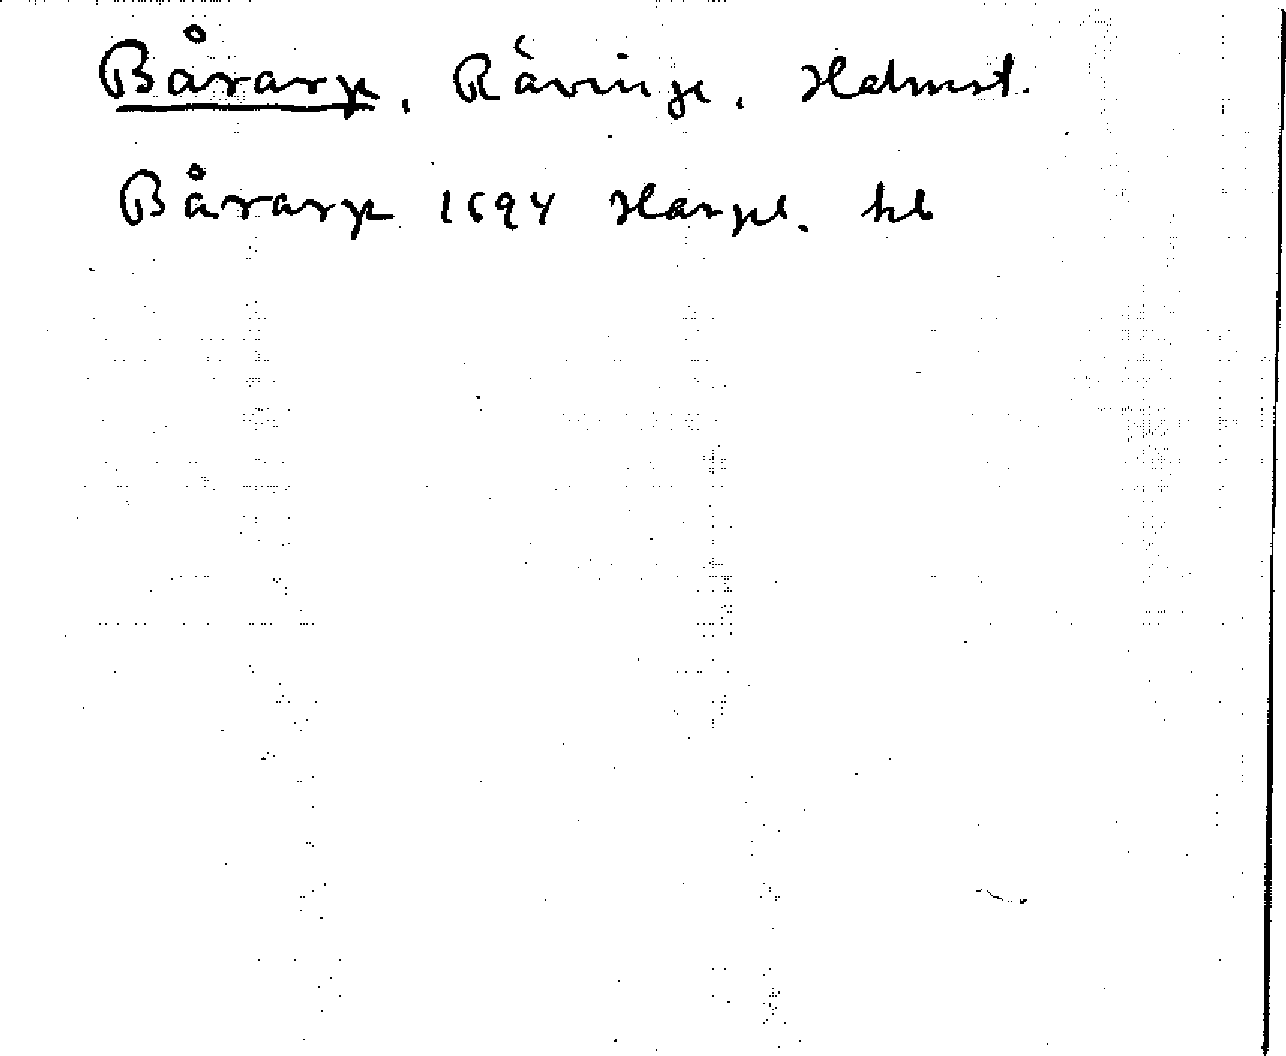 Bårarp, Rävinge, Halmst.
Bårarp 1694 Harpl. kb